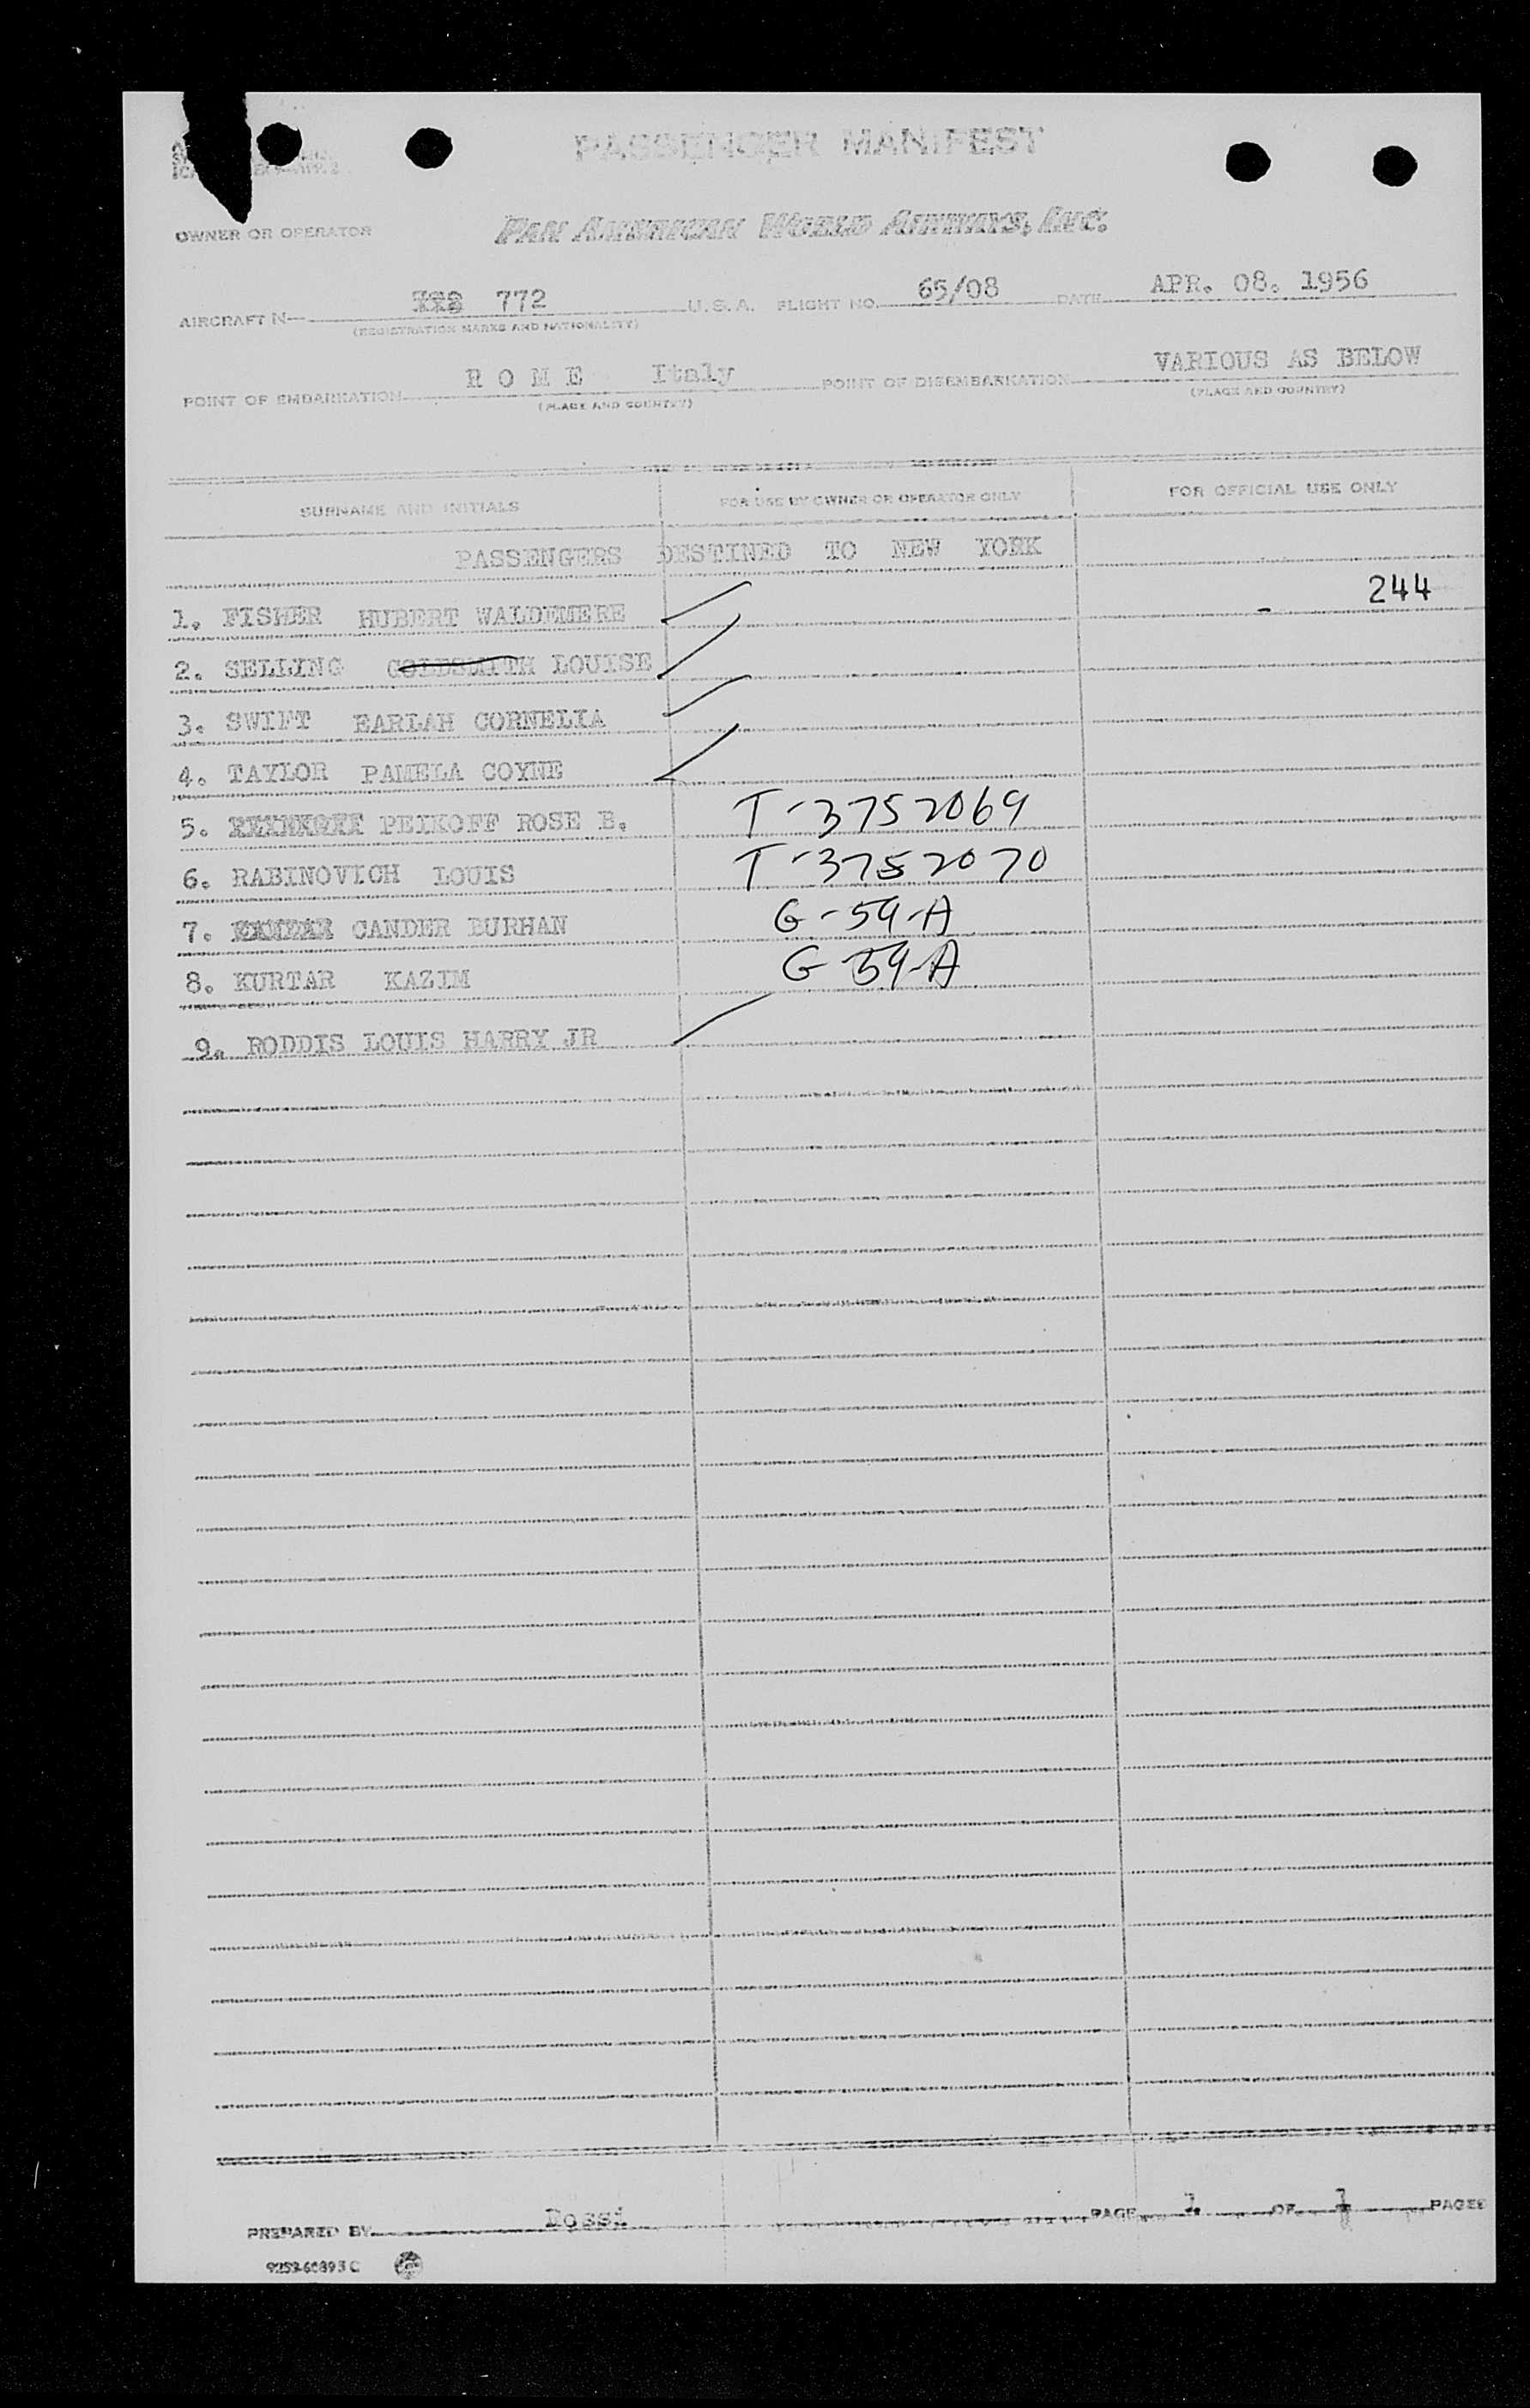 PASSENGER MANIFEST
OWNER OR OPERATOR PAN AMERICAN WORLD AIRWAYS, INC.
AIRCRAFT N— 772 U.S.A. FLIGHT NO. 65/08 DATE APR. 08. 1956
(REGISTRATION MARKS AND NATIONALITY)
POINT OF EMBARKATION R O M E Italy POINT OF DISEMBARKATION VARIOUS AS BELOW
(PLACE AND COUNTRY) (PLACE AND COUNTRY)
SURNAME AND INITIALS FOR USE BY OWNER OR OPERATOR ONLY FOR OFFICIAL USE ONLY
PASSENGERS DESTINED TO NEW YORK
244
1. FISHER HUBERT WALDEMERE
2. SELLING GOLDSMITH LOUISE
3. SWIFT EARLAH CORNELIA
4. TAYLOR PAMELA COYNE
5. PEIKOFF ROSE B. T-3752069
6. RABINOVICH LOUIS T-3752070
7. CANDER BURHAN G-59-A
8. KURTAR KAZIM G-59-A
9. RODDIS LOUIS HARRY JR
PREPARED BY Dossi PAGE 1 OF 1 PAGES